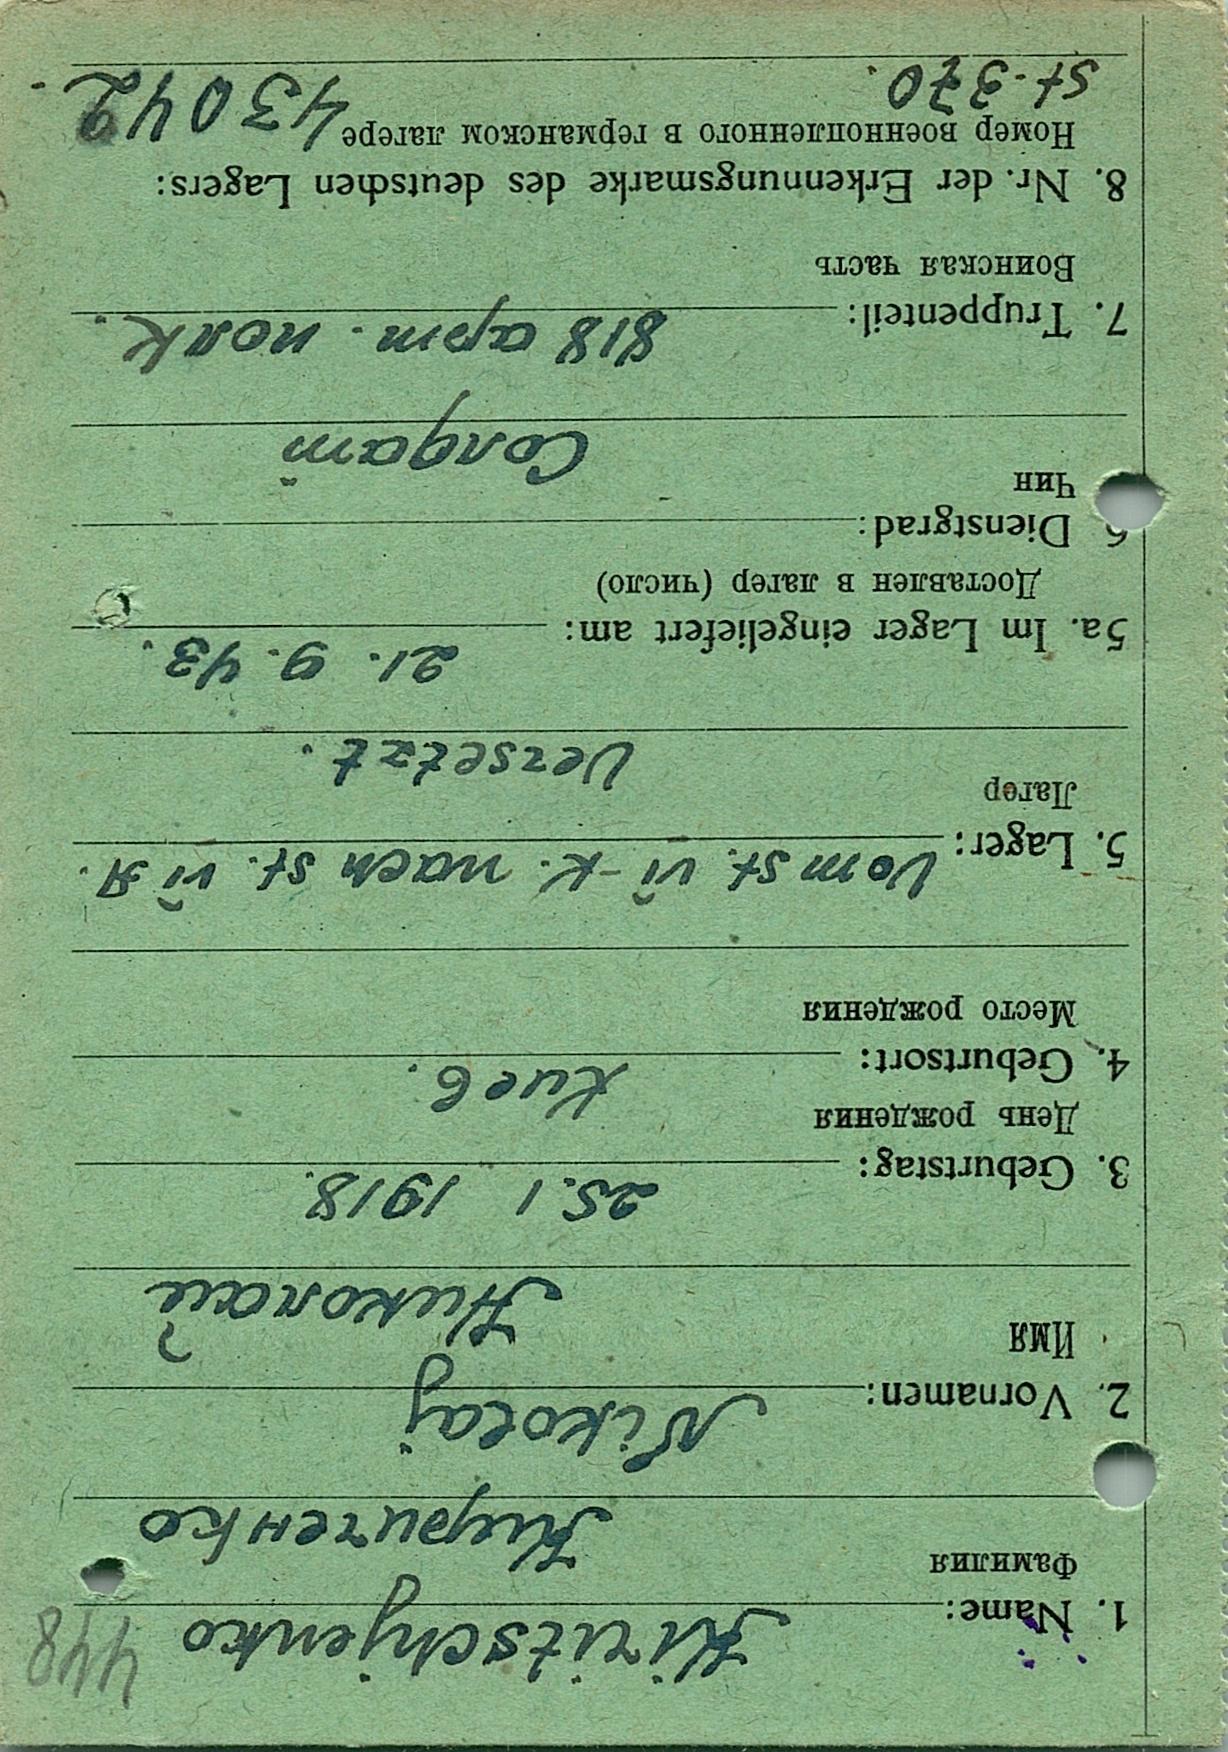 448
1. Name: Kiritschjenko
Фамилия Кириченко
2. Vornamen: Nikolaj
Имя Николай
3. Geburtstag: 25.1 1918.
День рождения
4. Geburtsort: Киев.
Место рождения
5. Lager: Vom st. VI-K. nach st. VI A.
Лагер Versetzt.
5a. Im Lager eingeliefert am: 21. 9. 43.
Доставлен в лагер (число)
6 Dienstgrad:
Чин Солдат
7. Truppenteil: 818 арт. полк.
Воинская часть
8. Nr. der Erkennungsmarke des deutschen Lagers:
Номер военнопленного в германском лагере 43042.
St-370.